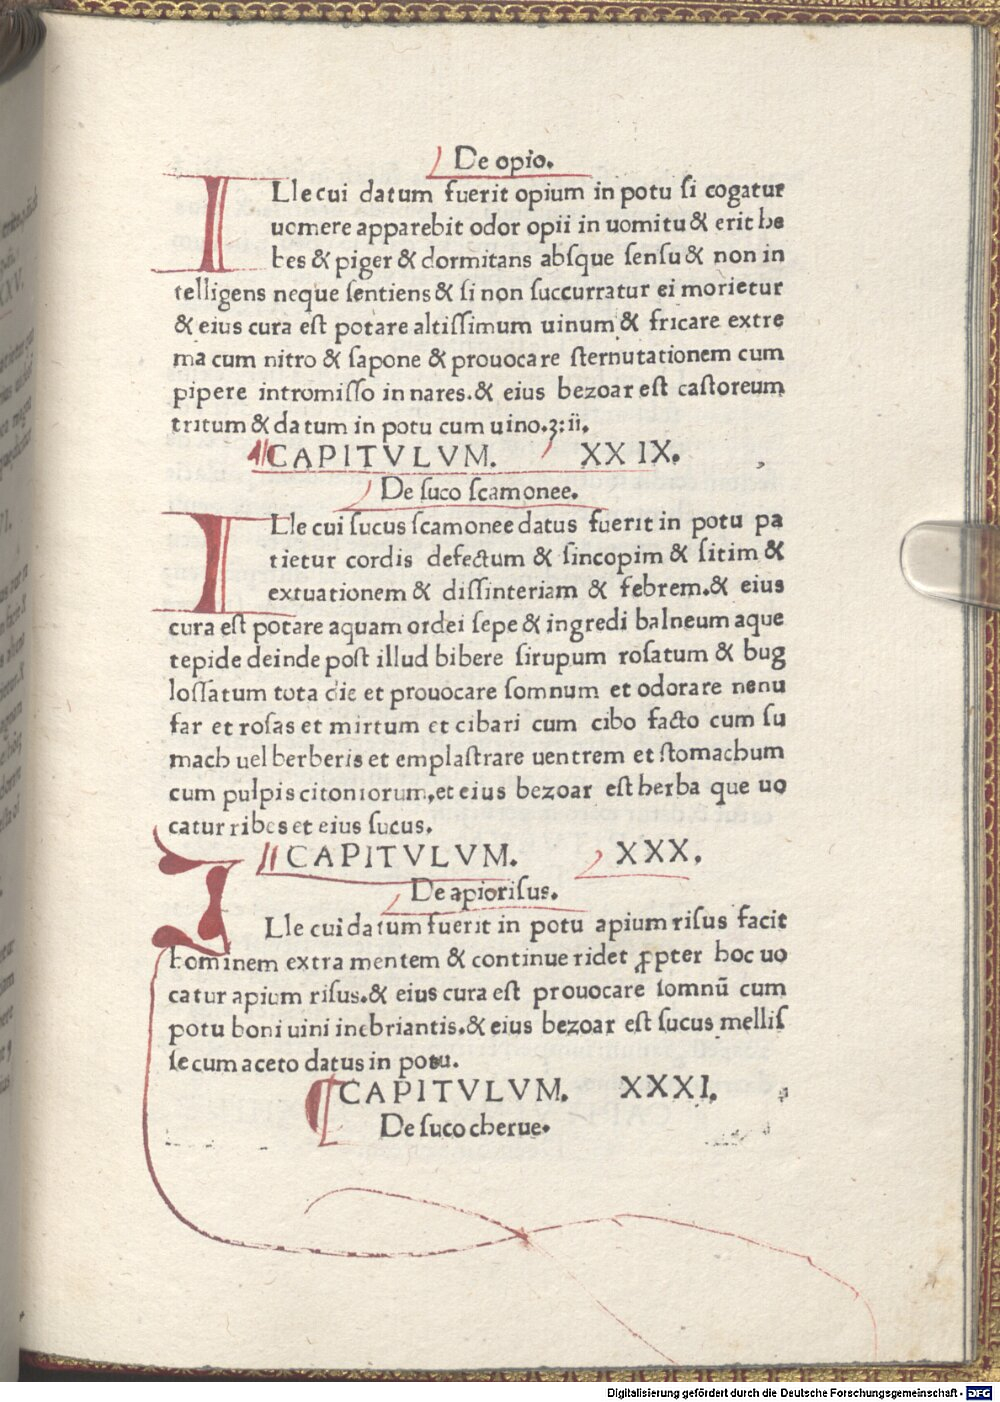 De opio.
ILle cui datum fuerit opium in potu ſi cogatur
uomere apparebit odor opii in uomitu & erit he
bes & piger & dormitans abſque ſenſu & non in
telligens neque ſentiens & ſi non ſuccurratur ei morietur
& eius cura eſt potare altiſſimum uinum & fricare extre
ma cum nitro & ſapone & prouocare ſternutationem cum
pipere intromiſſo in nares. & eius bezoar eſt caſtoreum
tritum & datum in potu cum uino.ʒ:ii.
CAPITVLVM. XXIX.
De ſuco ſcamonee.
ILle cui ſucus ſcamonee datus fuerit in potu pa
tietur cordis defectum & ſincopim & ſitim &
extuationem & diſſinteriam & febrem. & eius
cura eſt potare aquam ordei ſepe & ingredi balneum aque
tepide deinde poſt illud bibere ſirupum roſatum & bug
loſſatum tota die et prouocare ſomnum et odorare nenu
far et roſas et mirtum et cibari cum cibo facto cum ſu
mach uel berberis et emplaſtrare uentrem et ſtomachum
cum pulpis citoniorum, et eius bezoar eſt herba que uo
catur ribes et eius ſucus.
CAPITVLVM. XXX.
De apioriſus.
ILle cui datum fuerit in potu apium riſus facit
hominem extra mentem & continue ridet ꝓpter hoc uo
catur apium riſus. & eius cura eſt prouocare ſomnū cum
potu boni uini inebriantis. & eius bezoar eſt ſucus melliſ
ſe cum aceto datus in potu.
CAPITVLVM. XXXI.
De ſuco cherue.
Digitalisierung gefördert durch die Deutsche Forschungsgemeinschaft - DFG